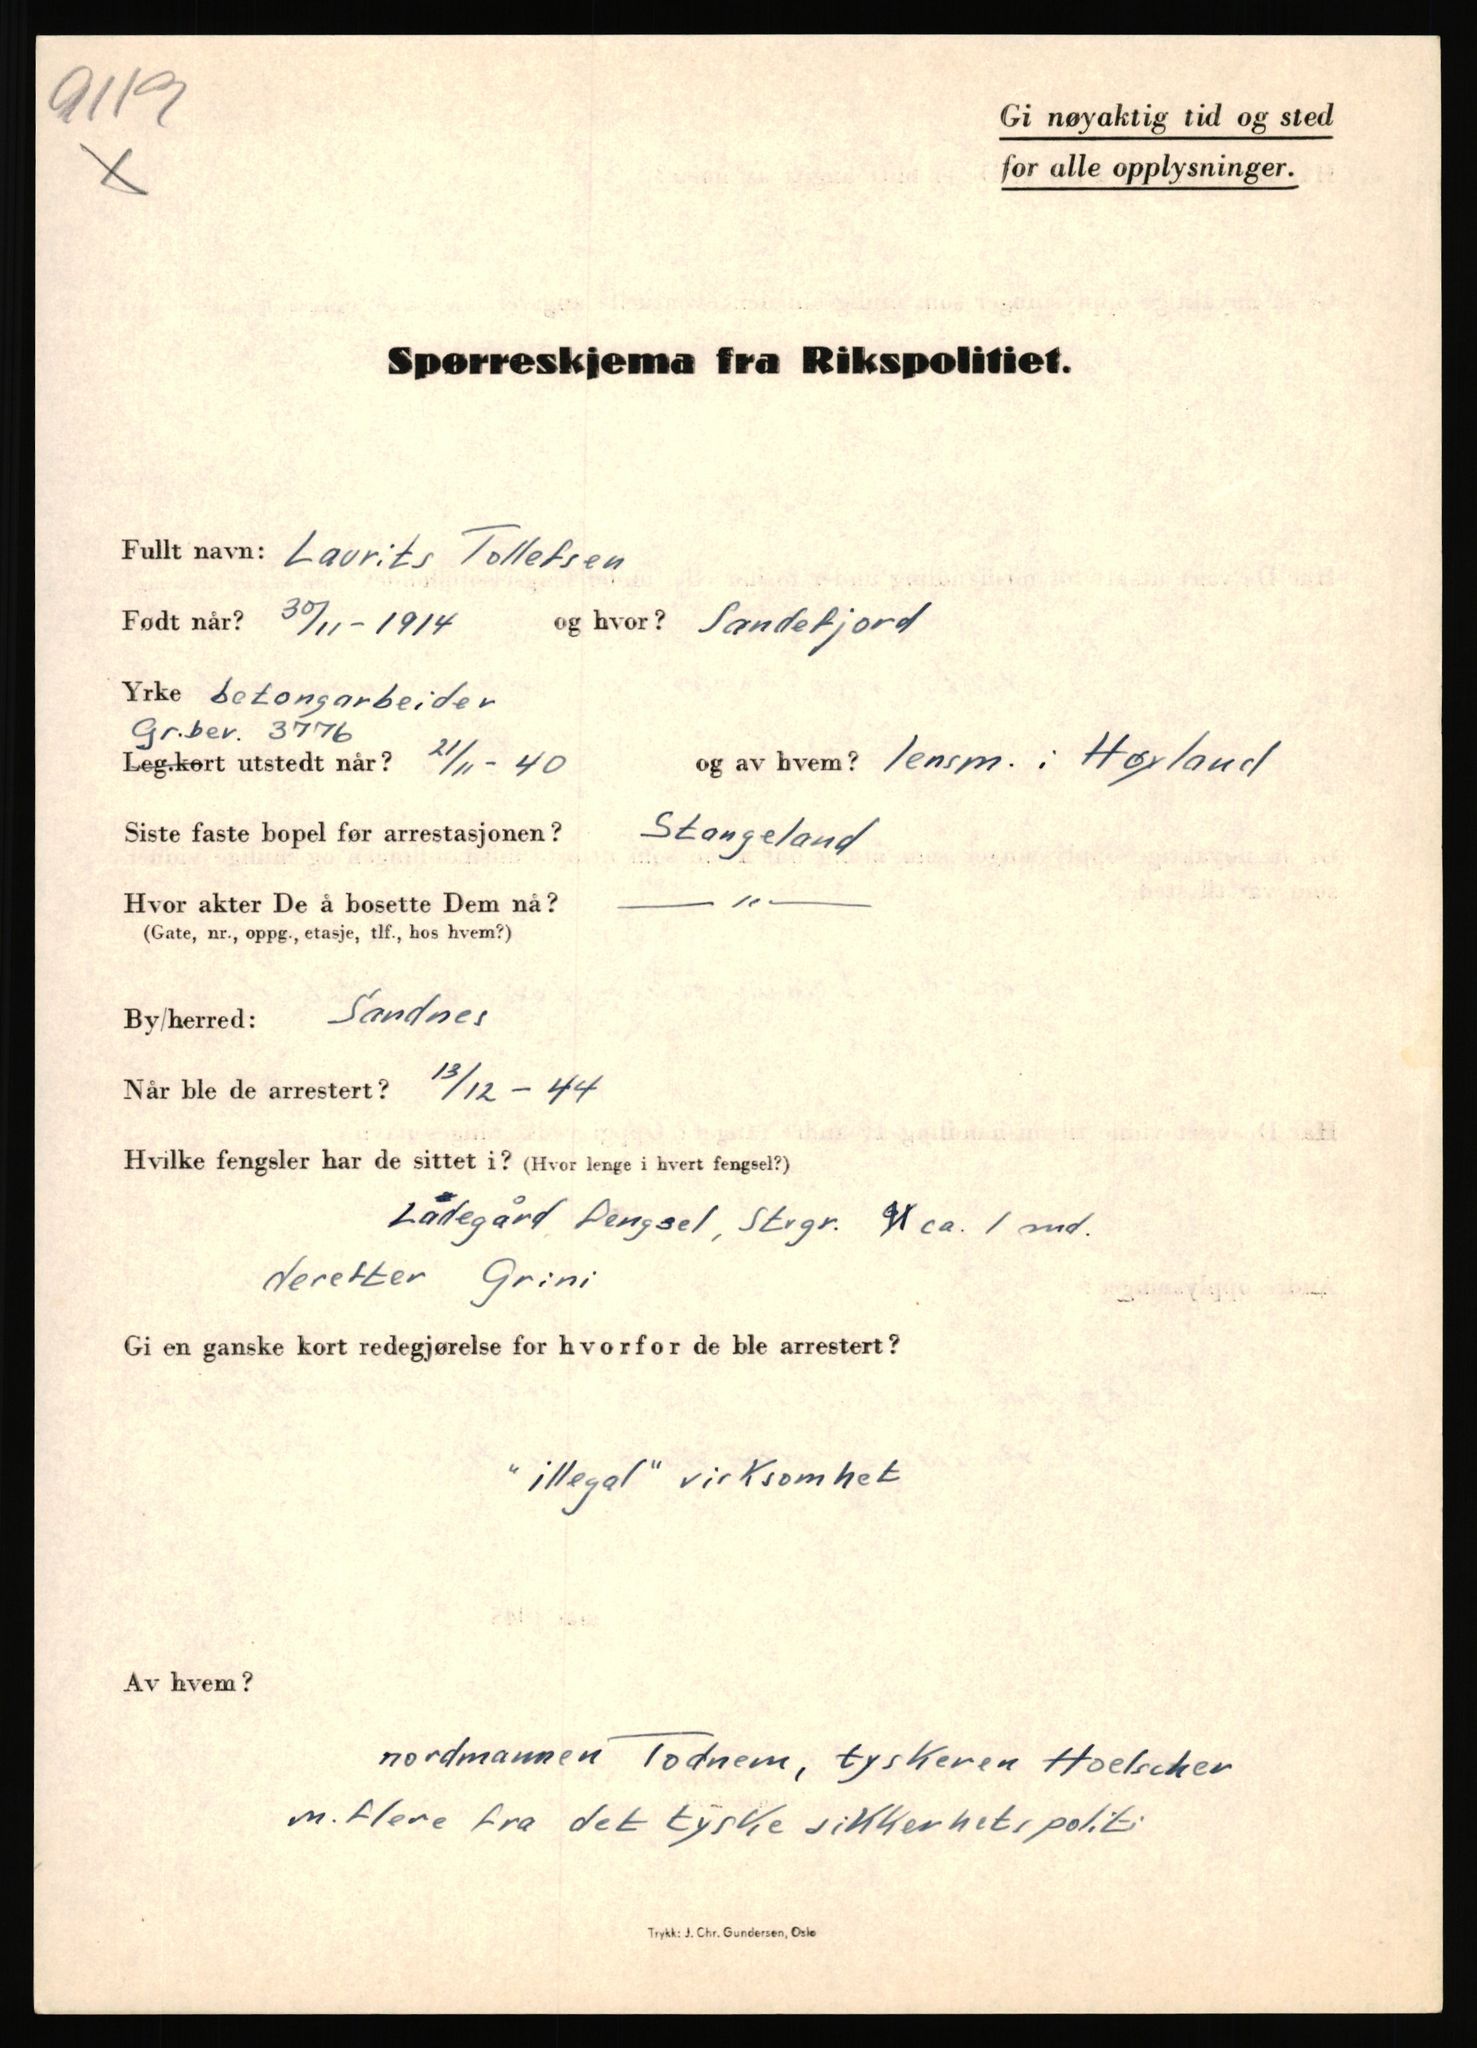 9119
X
Gi nøyaktig tid og sted
for alle opplysninger.
Spørreskjema fra Rikspolitiet.
Fullt navn: Laurits Tollefsen
Født når? 30/11 - 1914 og hvor? Sandefjord
Yrke betongarbeider
Gr.bev. 3776
Leg.kort utstedt når? 21/11 - 40 og av hvem? lensm. i Høyland
Siste faste bopel før arrestasjonen? Stangeland
Hvor akter De å bosette Dem nå? — " —
(Gate, nr., oppg., etasje, tlf., hos hvem?)
By/herred: Sandnes
Når ble de arrestert? 13/12 - 44
Hvilke fengsler har de sittet i? (Hvor lenge i hvert fengsel?)
Lådegård fengsel, Stvgr. ca. 1 md.
deretter Grini
Gi en ganske kort redegjørelse for hvorfor de ble arrestert?
"illegal" virksomhet
Av hvem?
nordmannen Todnem, tyskeren Hoelscher
m. flere fra det tyske sikkerhetspoliti
Trykk: J. Chr. Gundersen, Oslo